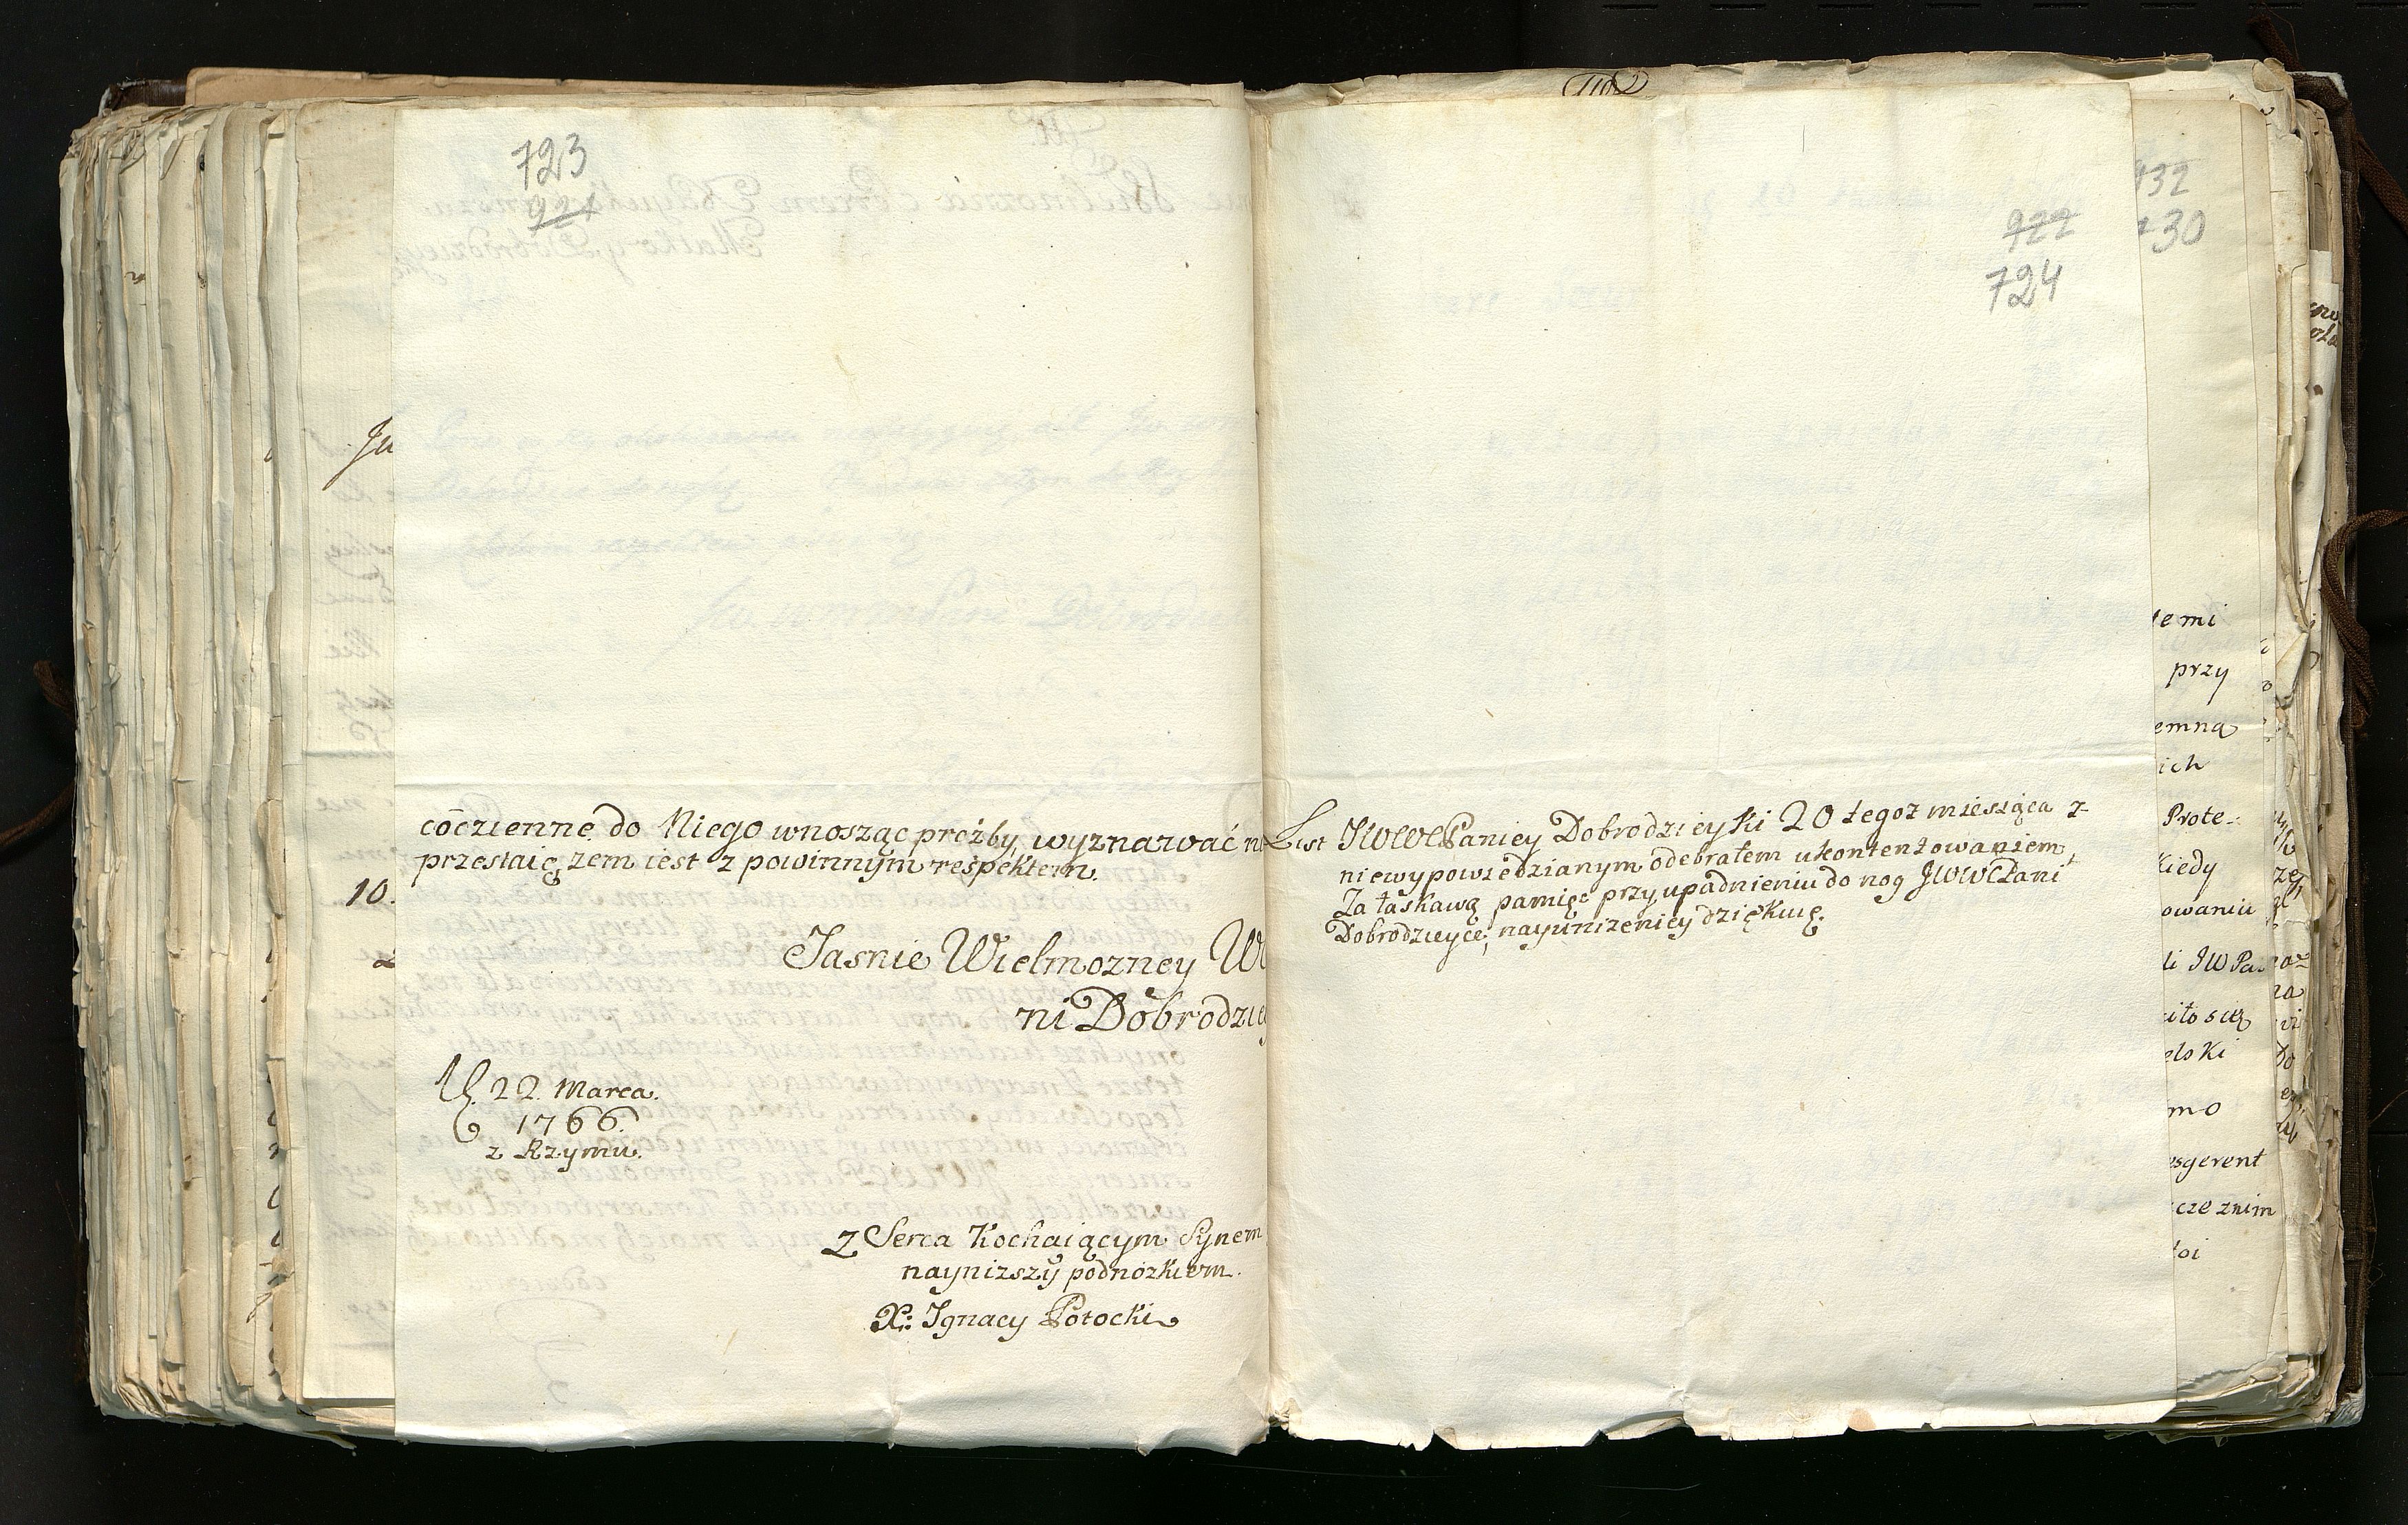 723
921
cōdzienne do Niego wnosząc prożby, wyznawać
przestaię, żem iest z powinnym respektem.
Jasnie Wielmozney
ni Dobrodzie
22. Marca.
1766.
z Rzymu.
z Serca Kochaiącym Synem
nayniższy podnożkiem.
X: Ignacy Potocki
922
724
List JWWMPaniey Dobrodzieyki 20 tegoż miesiąca z
niewypowiedzianym odebrałem ukontentowaniem,
Za łaskawą pamięć przy upadnieniu do nog JWWMPani
Dobrodzieyce, nayuniżeniey dziękuię.
Ju
10.
132
130
emi
przy
emną
ich
Prote-
kiedy
owaniu
li JWPa
iło się
elski
mo
esgerent
cze znim
toi